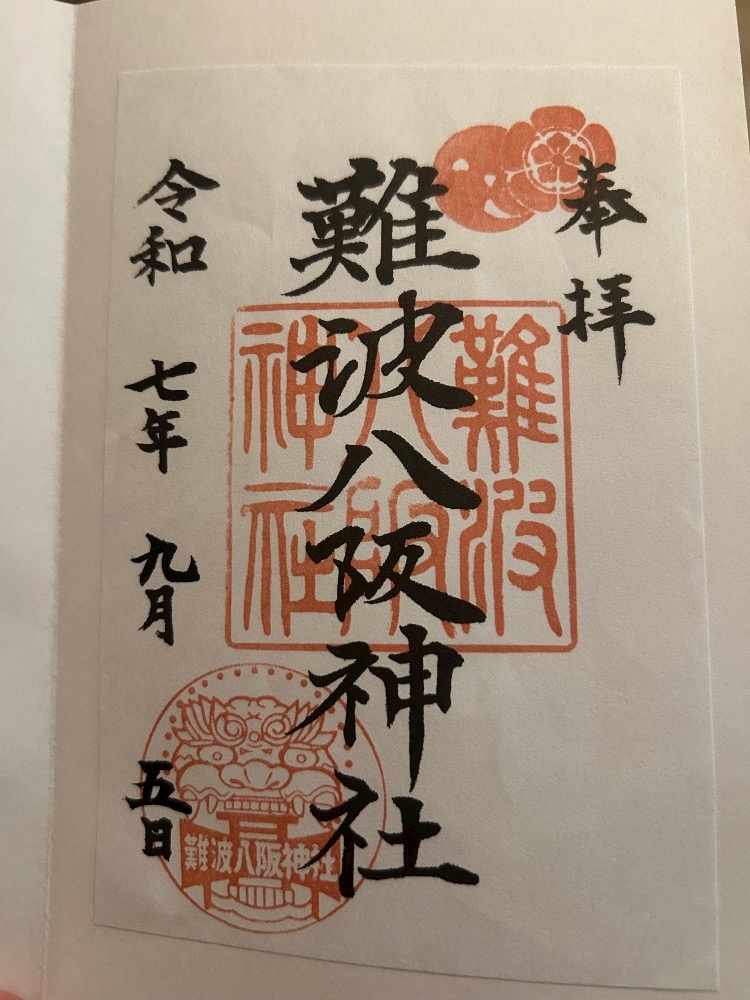 奉拝
難波八阪神社
令和 七年 九月 五日
難波
八阪
神社
難波八阪神社